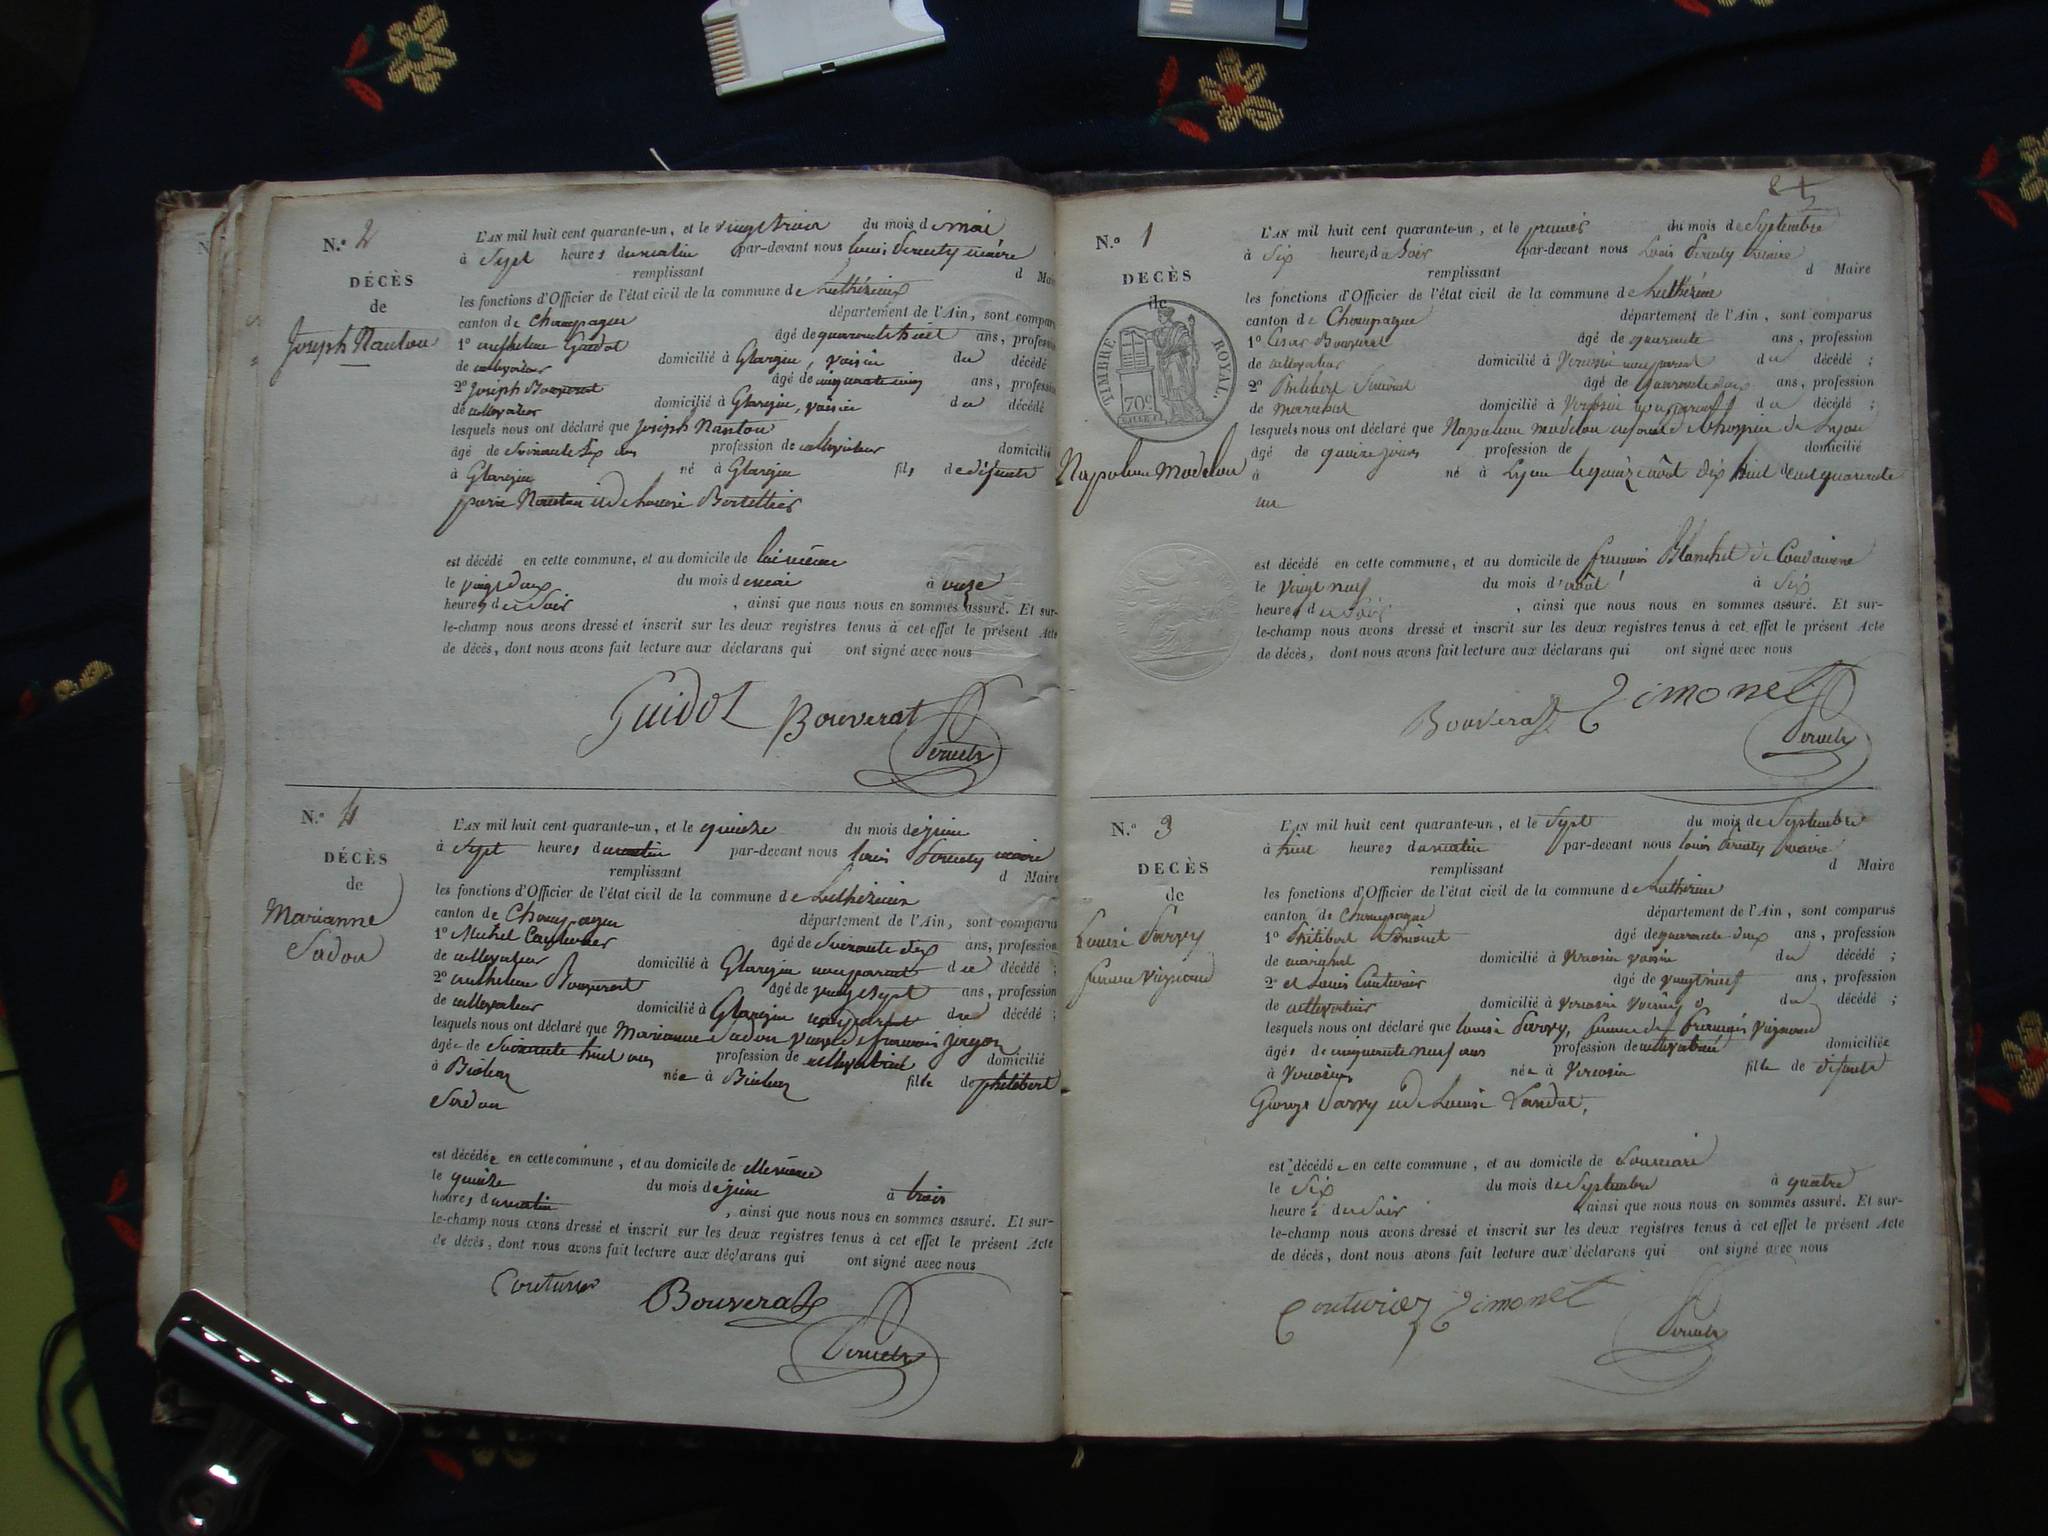 N.º 2
DÉCÈS
de
Joseph Nanton
L'AN mil huit cent quarante-un, et le vingt trois du mois de mai
à Sept heures du matin par-devant nous Louis maire
remplissant d Maire
les fonctions d'Officier de l'état civil de la commune de
canton de Champagne département de l'Ain, sont comparus
1º Guidot âgé de quarante huit ans, profession
de cultivateur domicilié à voisin du décédé
2º Joseph Bouverat âgé de cinquante cinq ans, profession
de cultivateur domicilié à voisin du décédé
lesquels nous ont déclaré que Joseph Nanton
âgé de Soixante Six ans profession de cultivateur domicilié
à né à fils de défunts
Nanton et de Louise
est décédé en cette commune, et au domicile de lui même
le vingt deux du mois de mai à onze
heures du Soir , ainsi que nous nous en sommes assuré. Et sur-
le-champ nous avons dressé et inscrit sur les deux registres tenus à cet effet le présent Acte
de décès, dont nous avons fait lecture aux déclarans qui ont signé avec nous
Guidot Bouverat
N.º 4
DÉCÈS
de
Marianne
Sadou
L'AN mil huit cent quarante-un, et le quinze du mois de juin
à Sept heures du matin par-devant nous Louis maire
remplissant d Maire
les fonctions d'Officier de l'état civil de la commune de
canton de Champagne département de l'Ain, sont comparus
1º Michel âgé de Soixante dix ans, profession
de cultivateur domicilié à non parent du décédé ;
2º Bouverat âgé de vingt Sept ans, profession
de cultivateur domicilié à non parent du décédé ;
lesquels nous ont déclaré que Marianne Sadou veuve de francois
âgée de Soixante huit ans profession de domicilié
à née à fille de philibert
Sadou
est décédée en cette commune, et au domicile de elle même
le quinze du mois de juin à trois
heures du matin , ainsi que nous nous en sommes assuré. Et sur-
le-champ nous avons dressé et inscrit sur les deux registres tenus à cet effet le présent Acte
de décès, dont nous avons fait lecture aux déclarans qui ont signé avec nous
Couturier Bouverat
N.º 1
DECÈS
de
TIMBRE ROYAL.
70c
Napoleon Modelon
L'AN mil huit cent quarante-un, et le premier du mois de Septembre
à Six heures du Soir par-devant nous Louis maire
remplissant d Maire
les fonctions d'Officier de l'état civil de la commune de
canton de Champagne département de l'Ain, sont comparus
1º Cesar Bouverat âgé de quarante ans, profession
de cultivateur domicilié à non parent du décédé ;
2º Philibert Simonet âgé de quarante deux ans, profession
de marechal domicilié à non parent du décédé ;
lesquels nous ont déclaré que Napoleon Modelon enfant de l'hospice de Lyon
âgé de quinze jours profession de domicilié
à né à Lyon le quinze août dix huit cent quarante
un
est décédé en cette commune, et au domicile de francois Blanchet
le vingt neuf du mois d'août à Six
heures du soir , ainsi que nous nous en sommes assuré. Et sur-
le-champ nous avons dressé et inscrit sur les deux registres tenus à cet effet le présent Acte
de décès, dont nous avons fait lecture aux déclarans qui ont signé avec nous
Bouverat Simonet
N.º 3
DECÈS
de
Louise Savey
femme
L'AN mil huit cent quarante-un, et le Sept du mois de Septembre
à huit heures du matin par-devant nous Louis maire
remplissant d Maire
les fonctions d'Officier de l'état civil de la commune de
canton de Champagne département de l'Ain, sont comparus
1º Philibert Simonet âgé de quarante deux ans, profession
de marechal domicilié à voisin du décédé ;
2º et Louis Couturier âgé de vingt neuf ans, profession
de cultivateur domicilié à voisin du décédé ;
lesquels nous ont déclaré que Louise femme de François
âgée de cinquante neuf ans profession de domiciliée
à née à fille de défunts
et de Louise
est décédée en cette commune, et au domicile de Son mari
le Six du mois de Septembre à quatre
heure du Soir , ainsi que nous nous en sommes assuré. Et sur-
le-champ nous avons dressé et inscrit sur les deux registres tenus à cet effet le présent Acte
de décès, dont nous avons fait lecture aux déclarans qui ont signé avec nous
Couturier Simonet